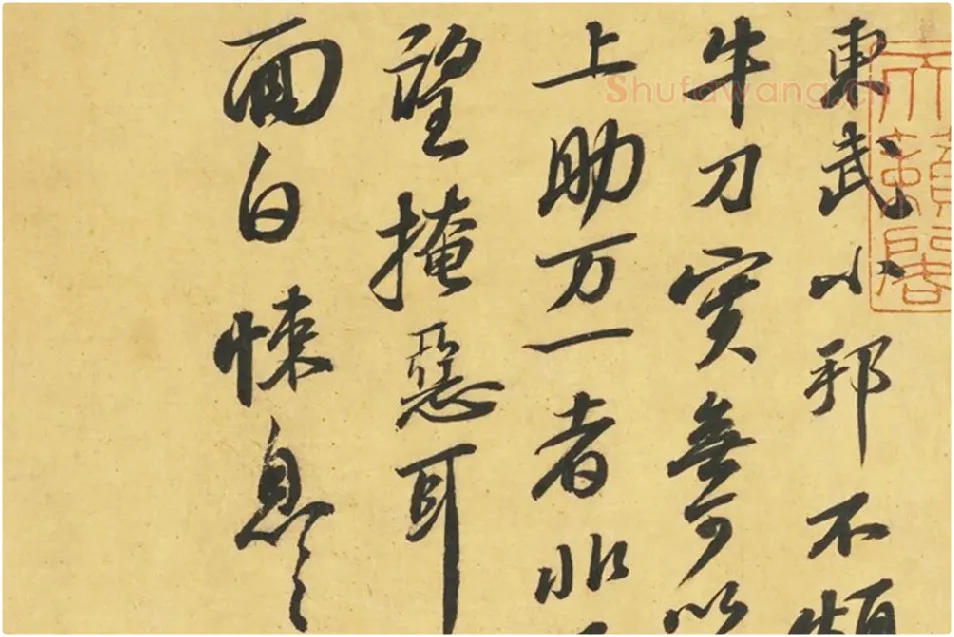 東武小邦不煩
牛刀實無可以
上助万一者非
望掩惡耳
面白悚息ミ
Shufawang.cn
天籟閣